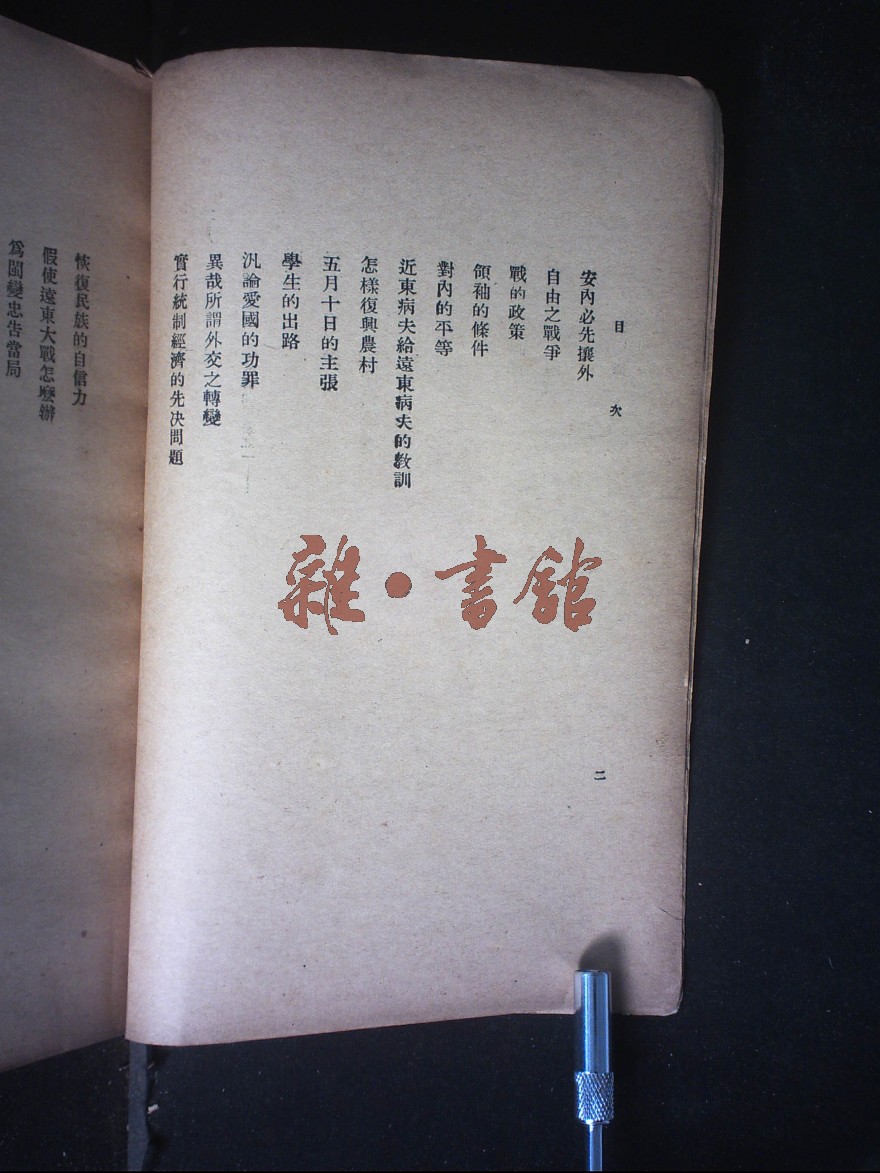 目次
安內必先攘外
自由之戰爭
戰的政策
領袖的條件
對內的平等
近東病夫給遠東病夫的教訓
怎樣復興農村
五月十日的主張
學生的出路
汎論愛國的功罪
異哉所謂外交之轉變
實行統制經濟的先决問題
二
恢復民族的自信力
假使遠東大戰怎麼辦
爲閩變忠告當局
雜·書館